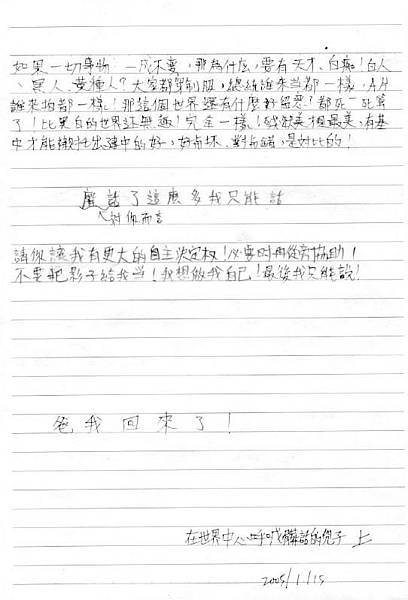 如果一切事物 一成不變,那為什麼,要有天才、白痴!白人
、黑人、黃種人?大家都穿制服,總統誰來當都一樣,AV
誰來拍都一樣!那這個世界還有什麼好留戀?都死一死算
了!比黑白的世界還無趣!完全一樣!殘缺美才是最美,有基
中才能襯托出建中的好。好與坏、對與錯,是對比的!
廢話了這麼多我只能話
對你而言
請你讓我有更大的自主決定权!必要時再從旁協助!
不要把影子給我當!我想做我自己!最後我只能說!
爸我回來了!
在世界中心呼喊 的兒子 上
2005/1/15